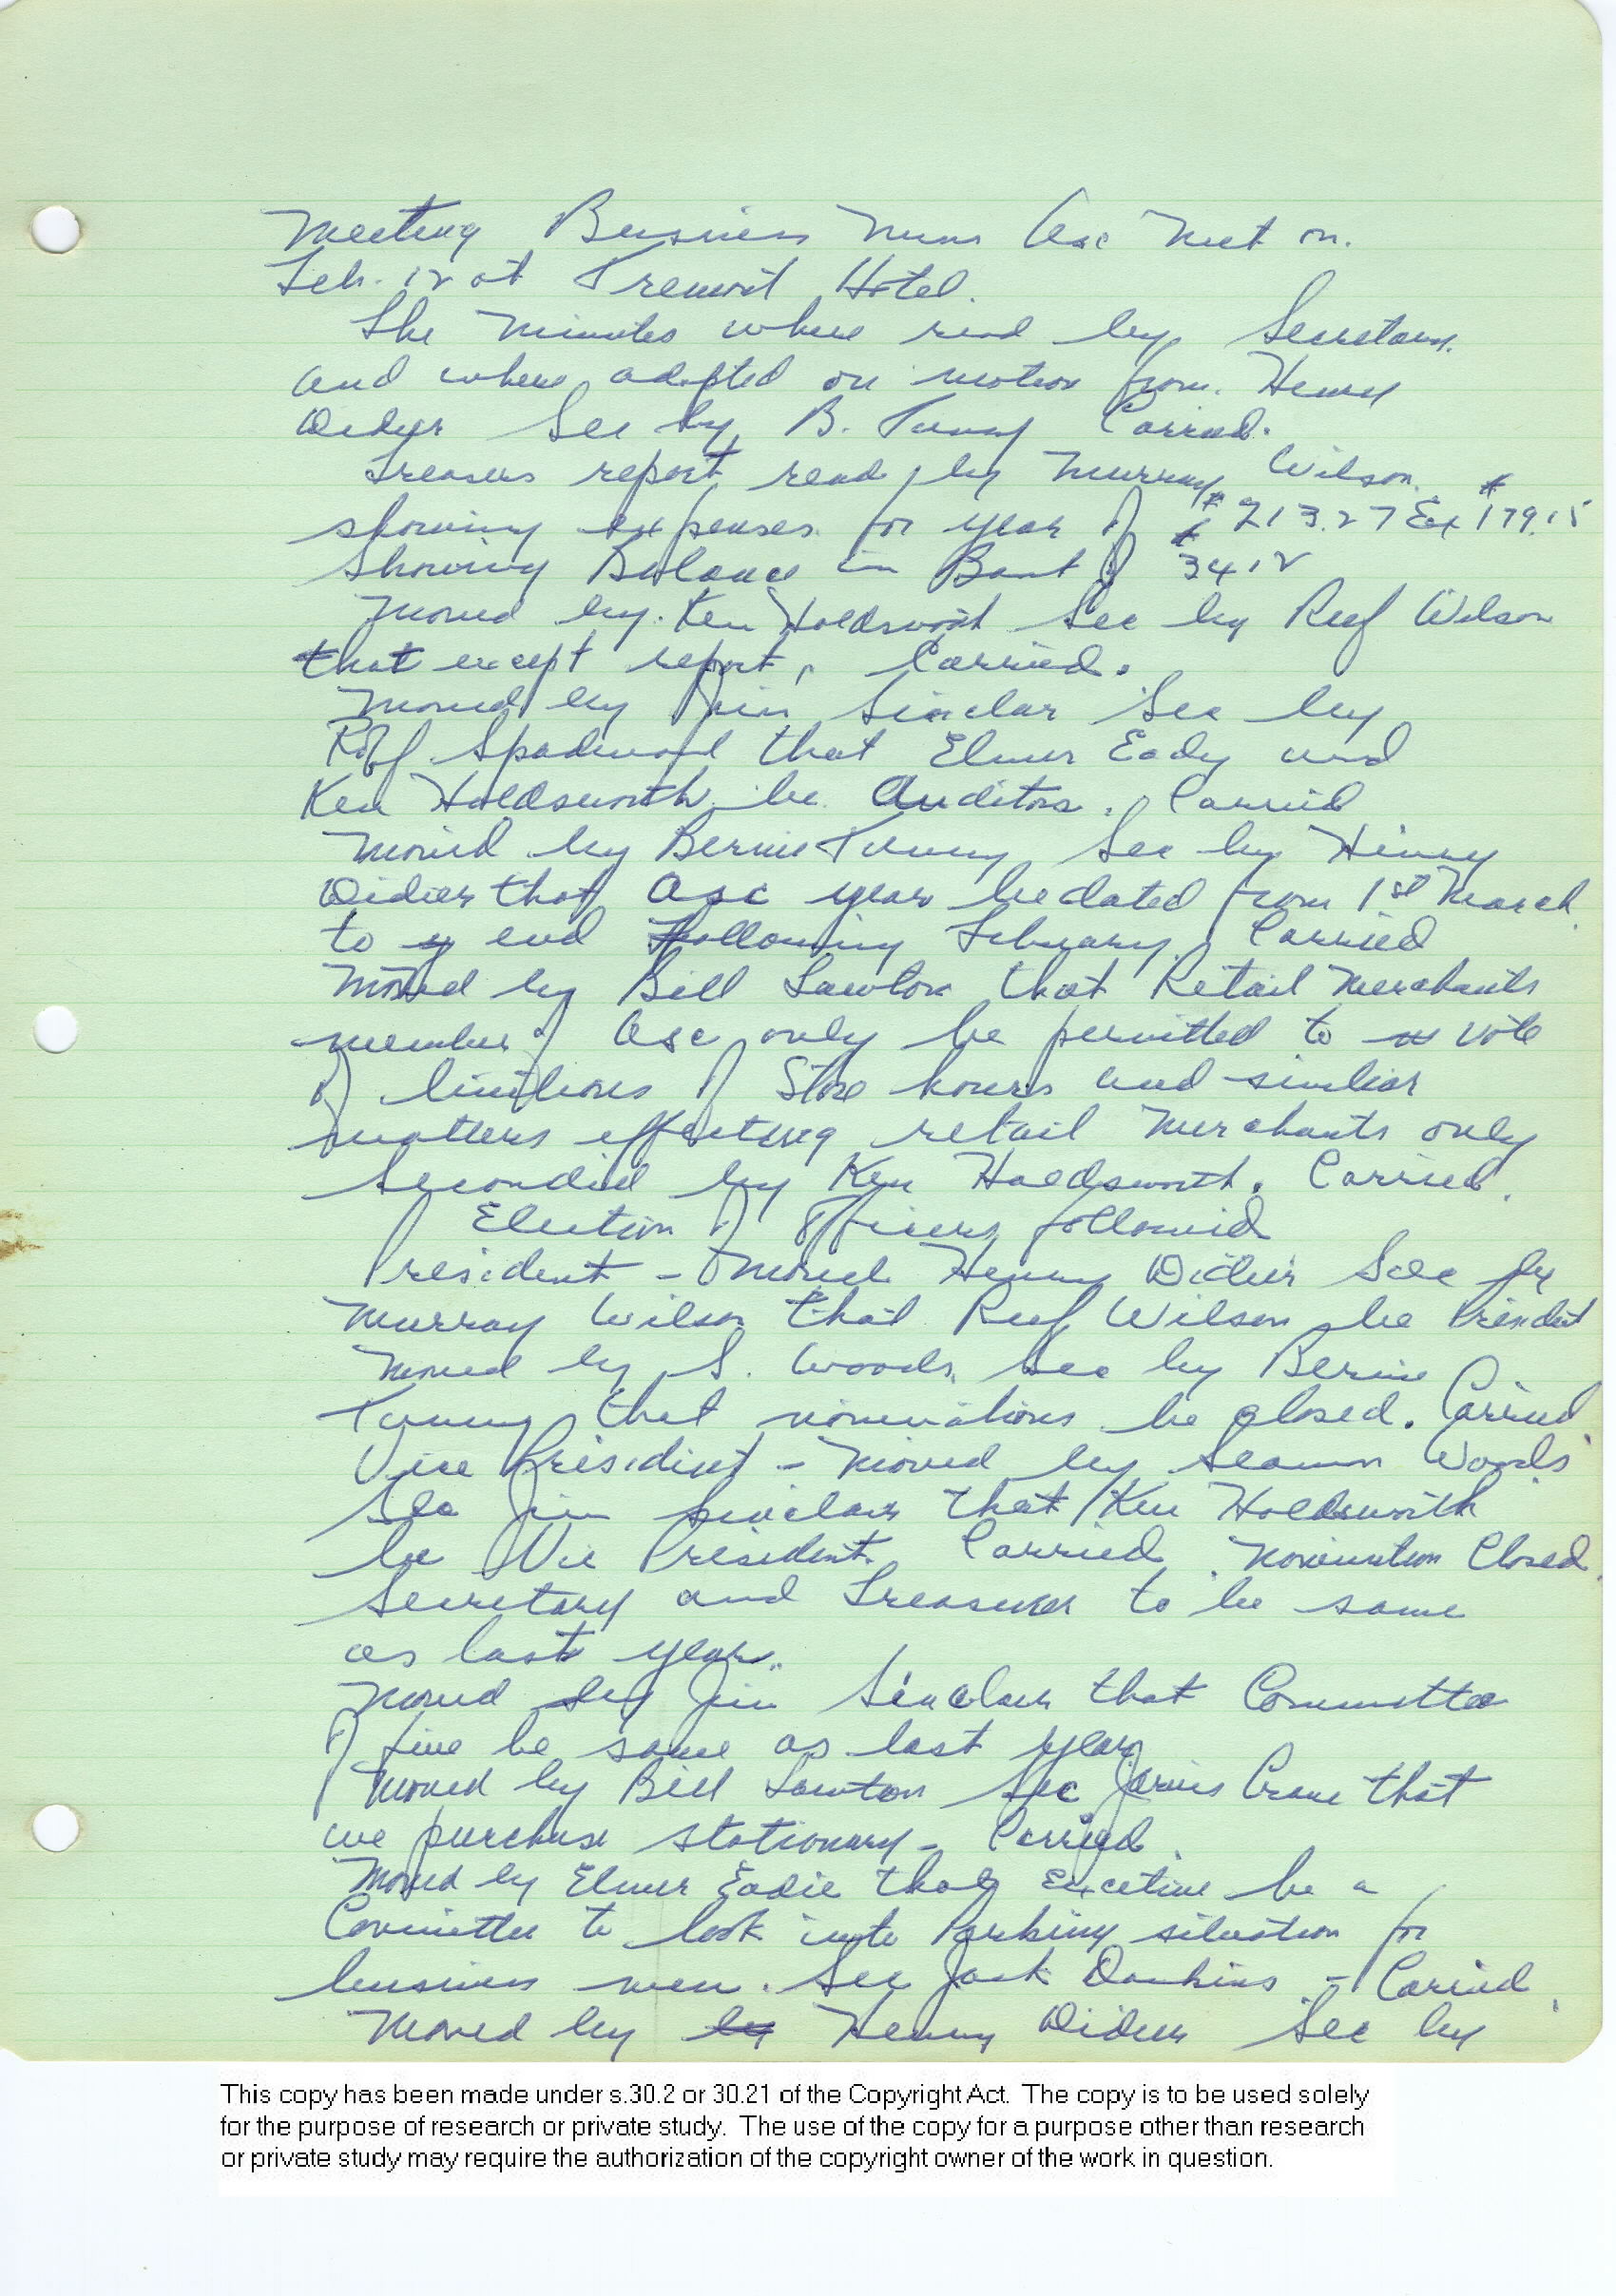 Meeting Business Mens Asc Met on.
Feb. 12 at Tremont Hotel.
The Minutes where read by Secretary.
and where adopted on motion from. Henry
Sec by B. Carried.
report read by Murray Wilson.
showing expenses for year of $213.27 Ex $179.15
Showing Balance in Bank of $34.12
Moved by. Ken Holdsworth Sec by Reef Wilson
that except report, Carried.
Moved by Jim Sinclar Sec by
that Elmer Eady and
Ken Holdsworth be Auditors. Carried
Moved by Bernie Sec by Henry
Didier that Asc year be dated from 1st March
to end Following February. Carried
Moved by Bill Lawton that Retail Merchants
member of Asc only be permitted to vote
of of Store hours and similiar
matters effecting retail Merchants only
Seconded by Ken Holdsworth. Carried.
Election of Officers followed
President - Moved Henry Didier Sec by
Murray Wilson that Reef Wilson be President
Moved by S. Woods. Sec by Bernie
that nominations be closed. Carried
Vice President - Moved by Woods
Sec Jim Sinclair that Ken Holdsworth
be Vic President. Carried. Nomination Closed.
Secretary and Treasurer to be same
as last year.
Moved by Jim Sinclair that Committee
of five be same as last year
Moved by Bill Lawton Sec Jarvis Crane that
we purchase stationary - Carried.
Moved by Elmer Eadie that Excetive be a
Committee to look into Parking situation for
business men. Sec Jack Dankins - Carried.
Moved by by Henry Didier Sec by
This copy has been made under s.30.2 or 30.21 of the Copyright Act. The copy is to be used solely
for the purpose of research or private study. The use of the copy for a purpose other than research
or private study may require the authorization of the copyright owner of the work in question.